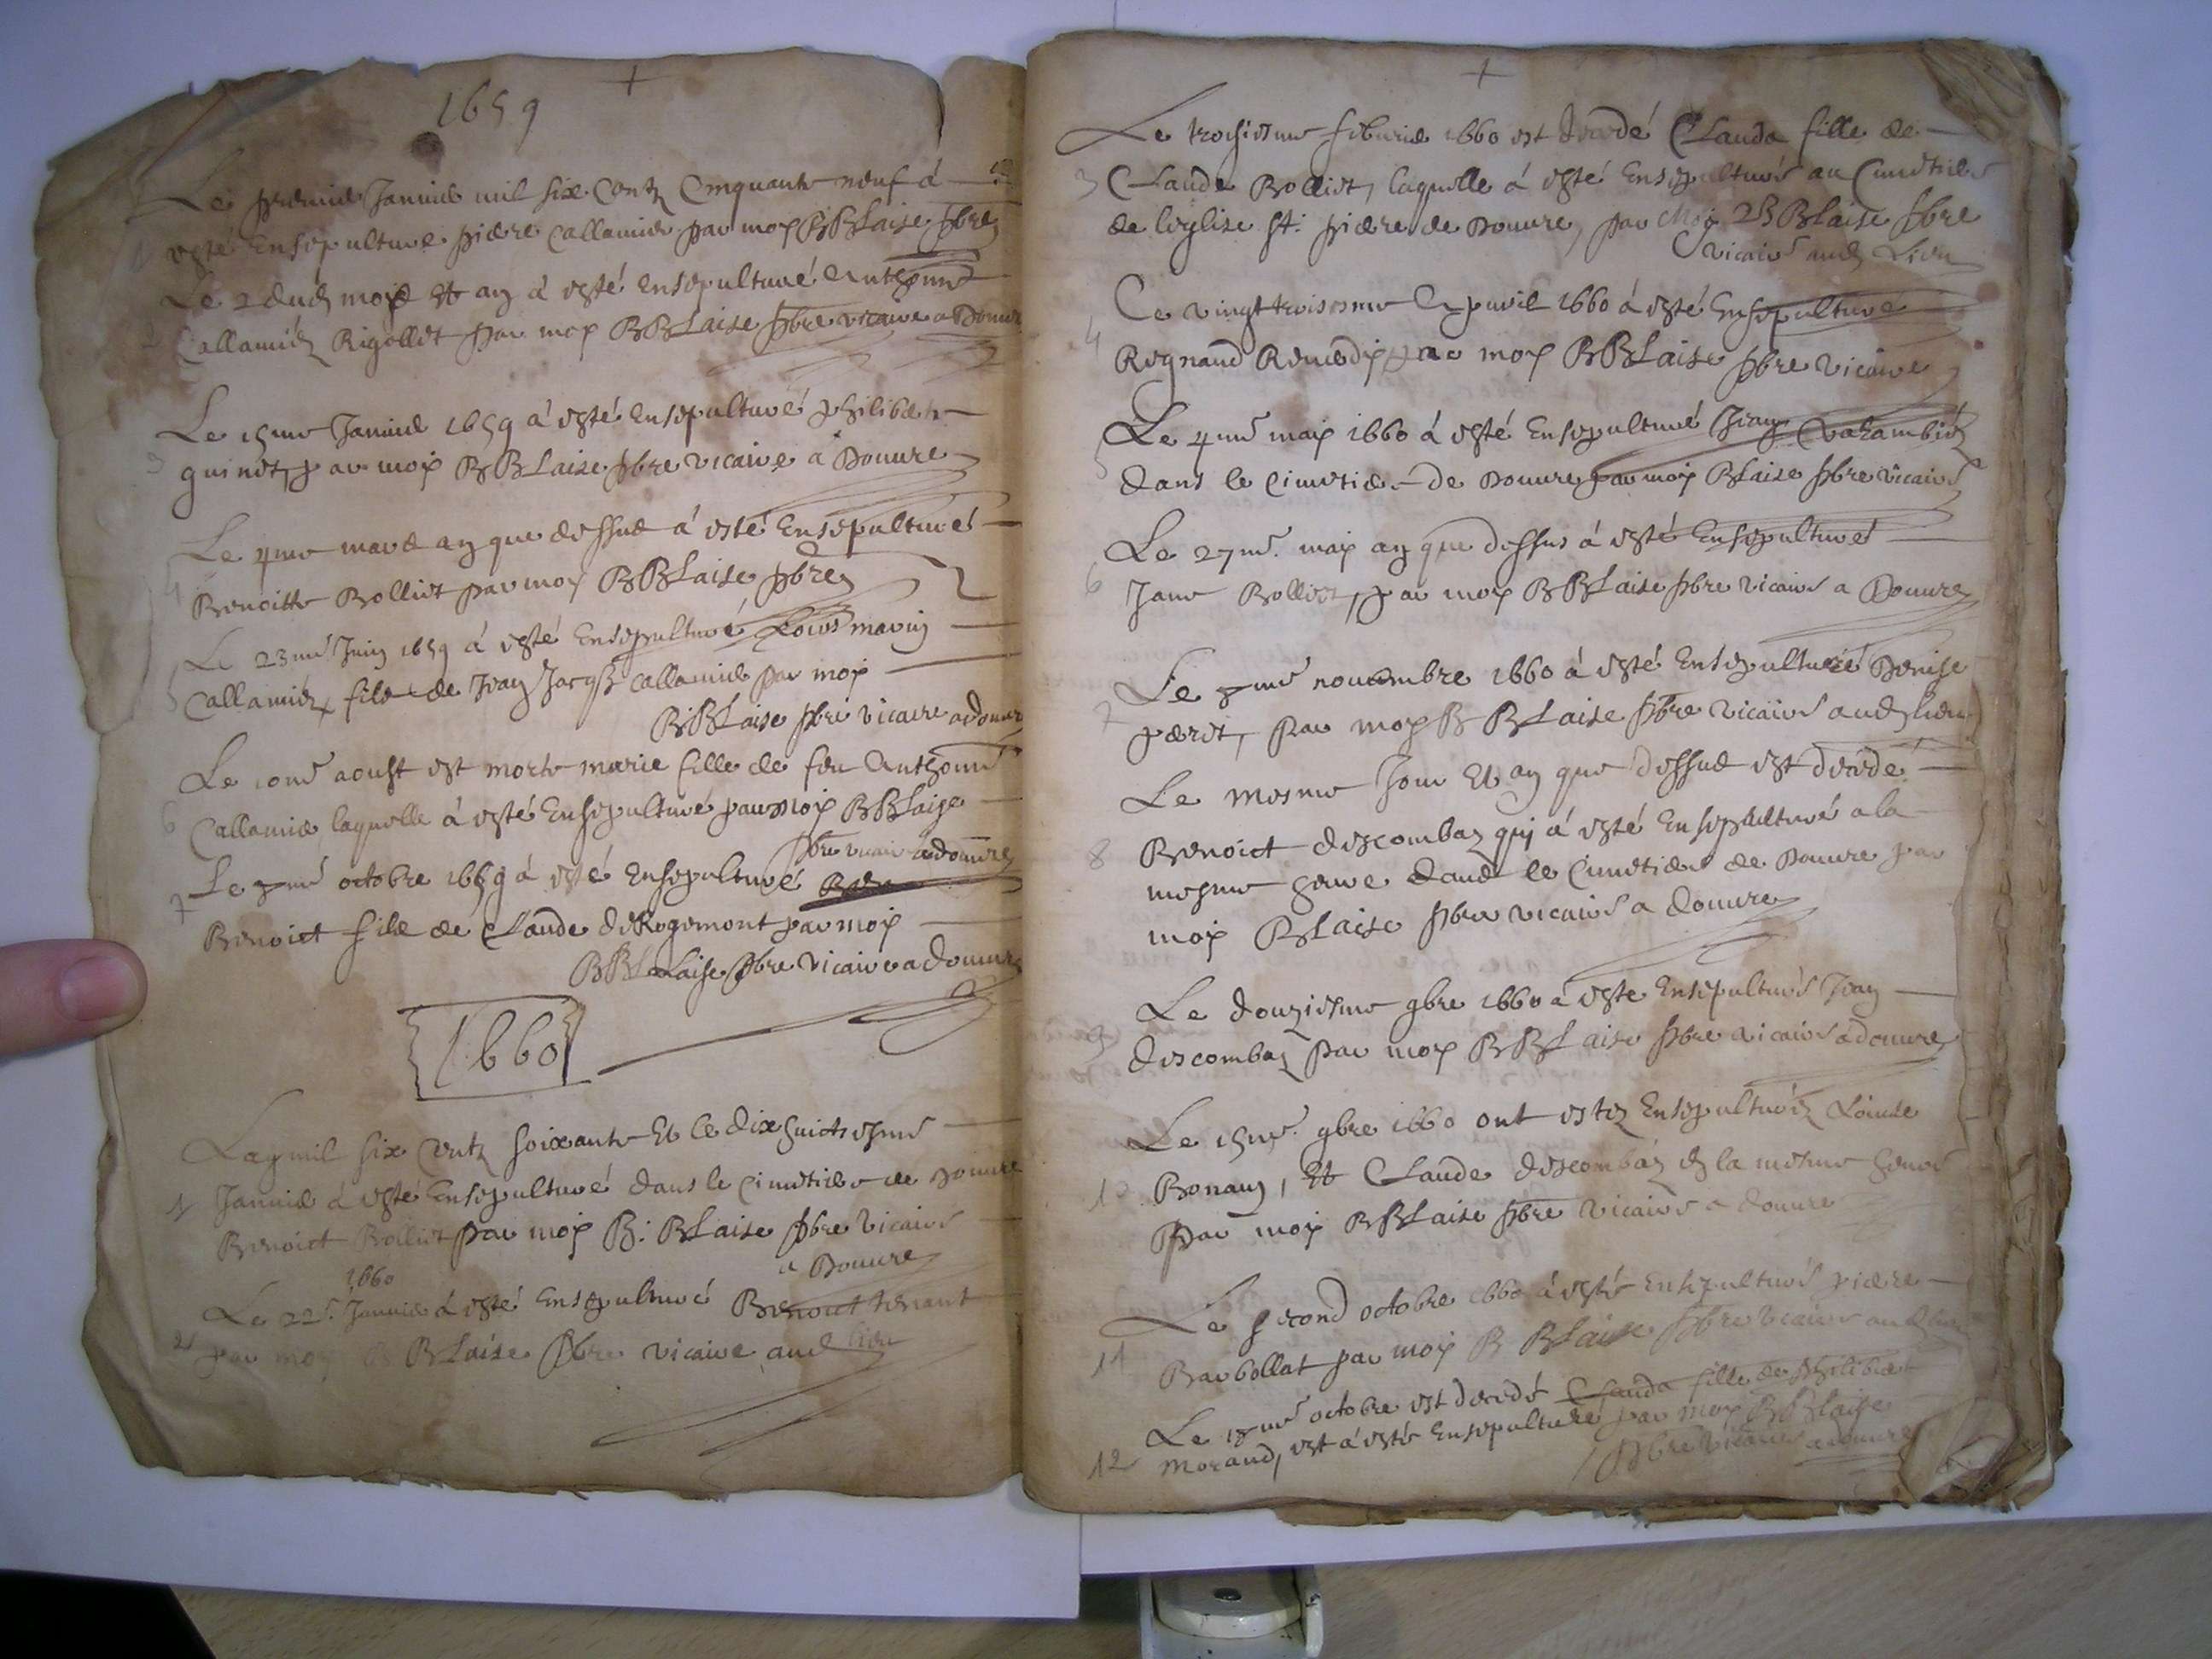 1659
Le premier Janvier mil six Centz Cinquante neuf à
1 esté Ensepulturé pierre Callamier par moy BBLaise pbre
Le 2 dud moys Et an à esté Ensepulturé Anthoine
Callamier Rigollet par moy BBLaise pbre vicaire a Douvre
Le 15me Janvier 1659 à esté Ensepulturé philibert
3 guinet, par moy BBLaise pbre vicaire a Douvre
Le 4me mars an que dessus à esté Ensepulturé
4 Benoitte Bolliet par moy BBLaise pbre
Le 23me Juin 1659 à esté Ensepulturé Louis marin
5 Callamier fils de Jean Jacqs Callamier par moy
BBLaise pbre vicaire a douvre
Le 10me aoust est morte marie fille de feu Anthoine
6 Callamier laquelle à esté Ensepulturé par moy BBLaise
pbre vicaire a douvre
7 Le 7me octobre 1659 à esté Ensepulturé
Benoict fils de Claude deRogemont par moy
BBLaise pbre vicaire a douvre
1660
Lan mil six Centz soixante Et le dix huictiesme
1 Janvier à esté Ensepulturé dans le Cimetiere de Douvre
Benoict Bolliet par moy B: BLaise pbre vicaire
a Douvre
1660
Le 22e Janvier à esté Ensepulturé Benoict tenant
2 par moy B BLaise pbre vicaire aud lieu
Le troysiesme febvrier 1660 est decedé Clauda fille de
3 Claude Bolliet, laquelle à esté Ensepulturé au Cimetiere
de leglise St. pierre de Douvre, par Moy BBLaise pbre
vicaire aud Lieu
Ce vingt troisiesme Apvril 1660 à esté Ensepulturé
4 Regnaud Remedy par moy BBLaise pbre vicaire
Le 4me may 1660 à esté Ensepulturé Jean
5 dans le Cimetiere de Douvre par moy BLaise pbre vicaire
Le 27me. may an que dessus à esté Ensepulturé
6 Jane Bolliet, par moy BBLaise pbre vicaire a Douvre
Le 7me novembre 1660 à esté Ensepulturé Denise
7 peret, par moy B BLaise pbre vicaire aud lieu
Le mesme Jour Et an que dessus est decedé
8 Benoict descombaz qui à esté Ensepulturé a la
mesme heure dans le Cimetiere de Douvre par
moy BLaise pbre vicaire a douvre
Le douziesme 9bre 1660 à esté Ensepulturé Jean
9 descombaz par moy BBLaise pbre vicaire a douvre
Le 15me. 9bre 1660 ont estez Ensepulturéz
10 Bonany, Et Claude descombaz en la mesme heure
par moy BBLaise pbre vicaire a douvre
Le second octobre 1660 à esté Ensepulturé pierre
11 Barbollat par moy B BLaise pbre vicaire aud lieu
Le 17me octobre est decedé Clauda fille de philibert
12 Morand, est à esté Ensepulturé par moy BBLaise
pbre vicaire a douvre